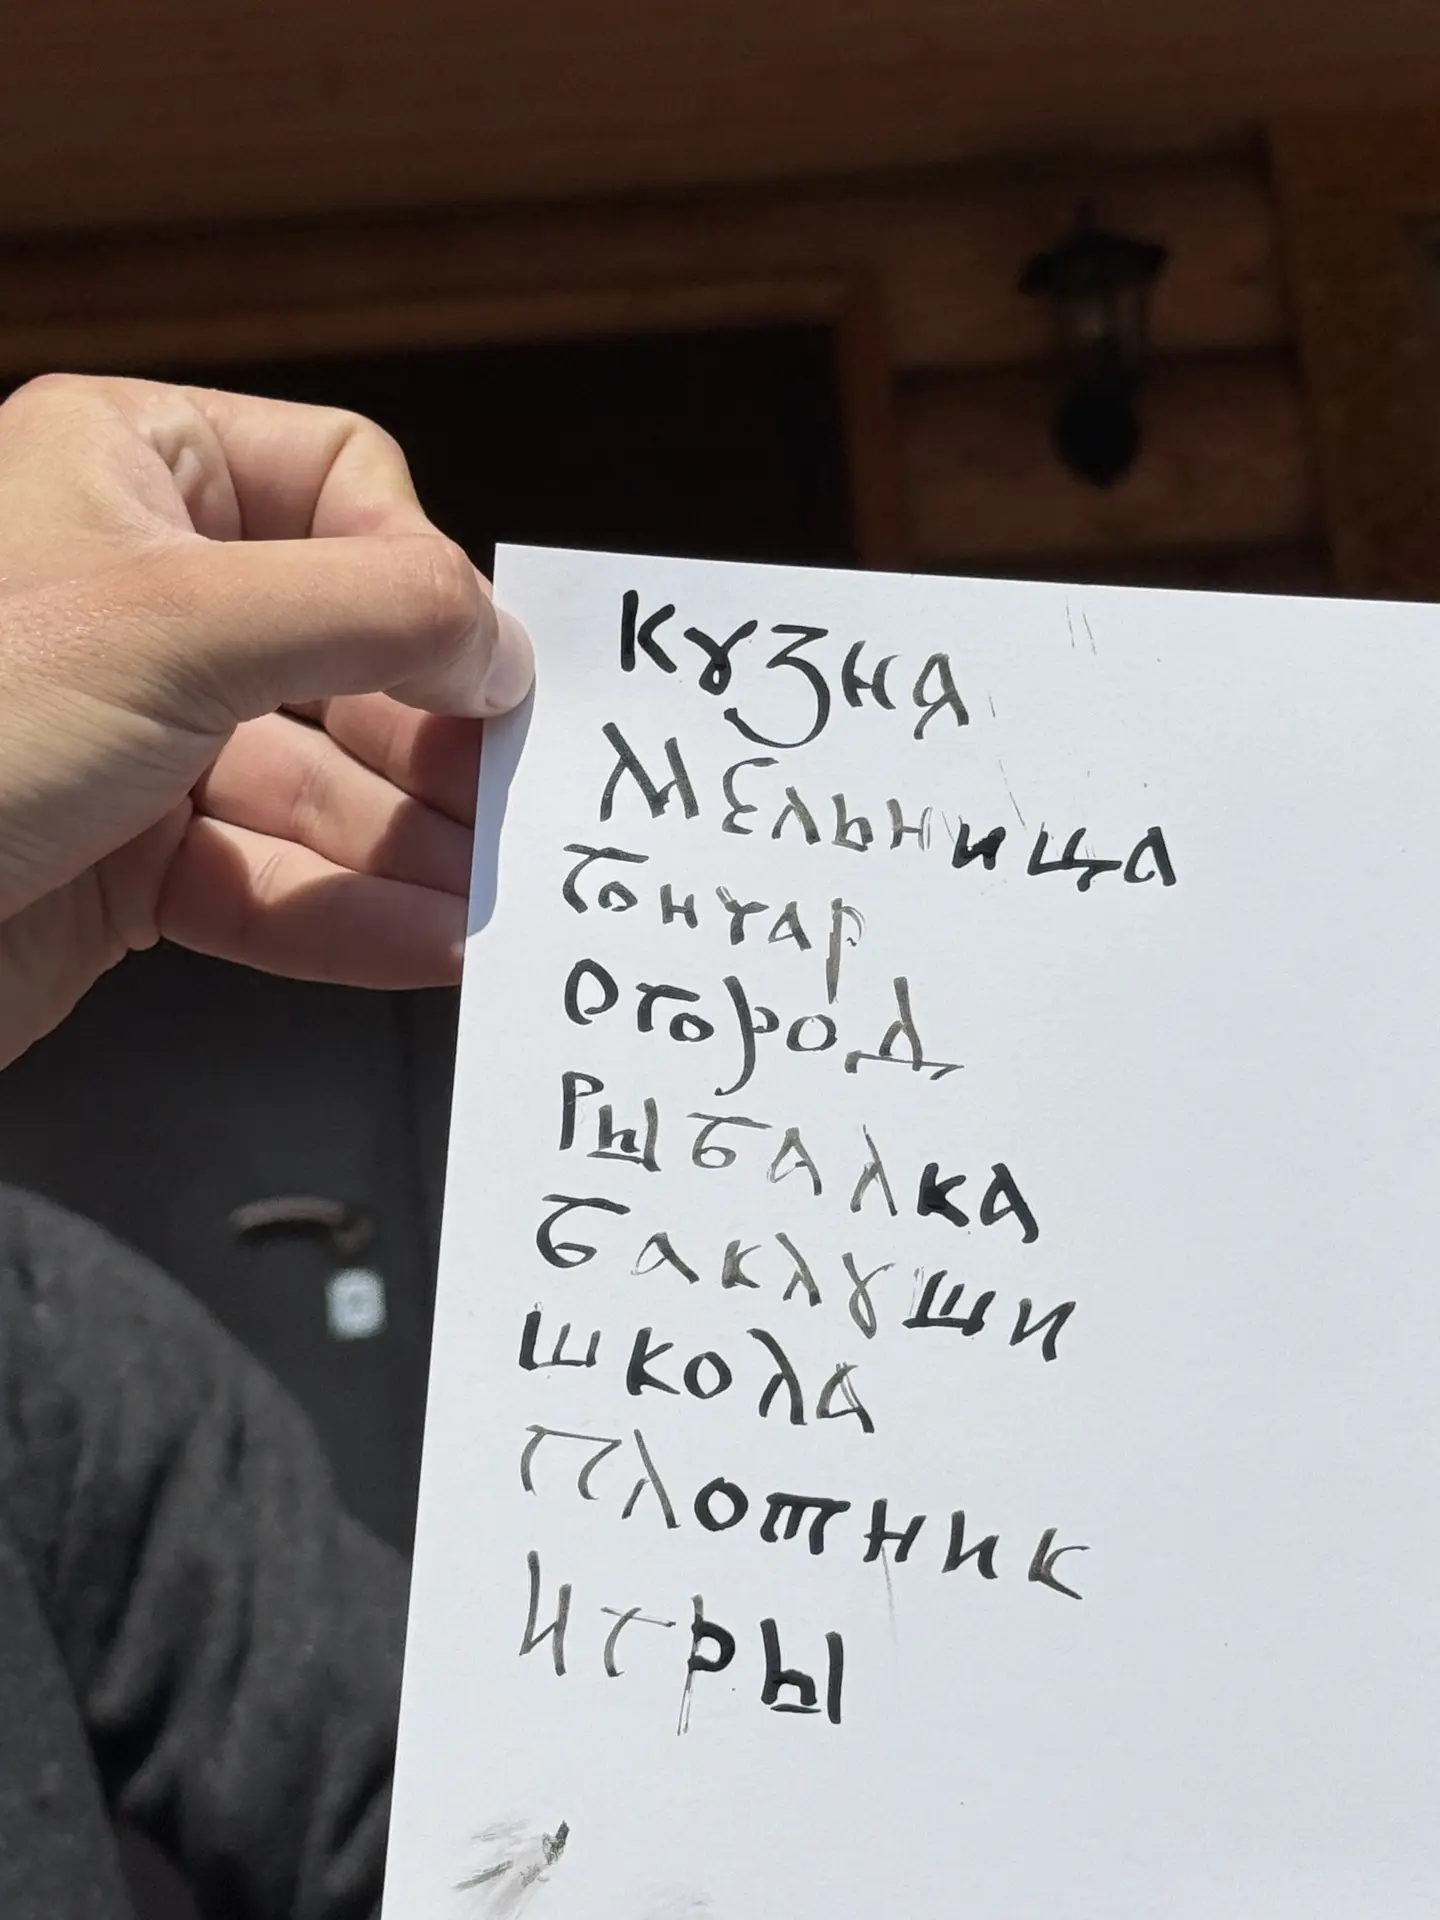 Кузня
Мельница
Гончар
Огород
Рыбалка
Баклуши
Школа
Плотник
Игры